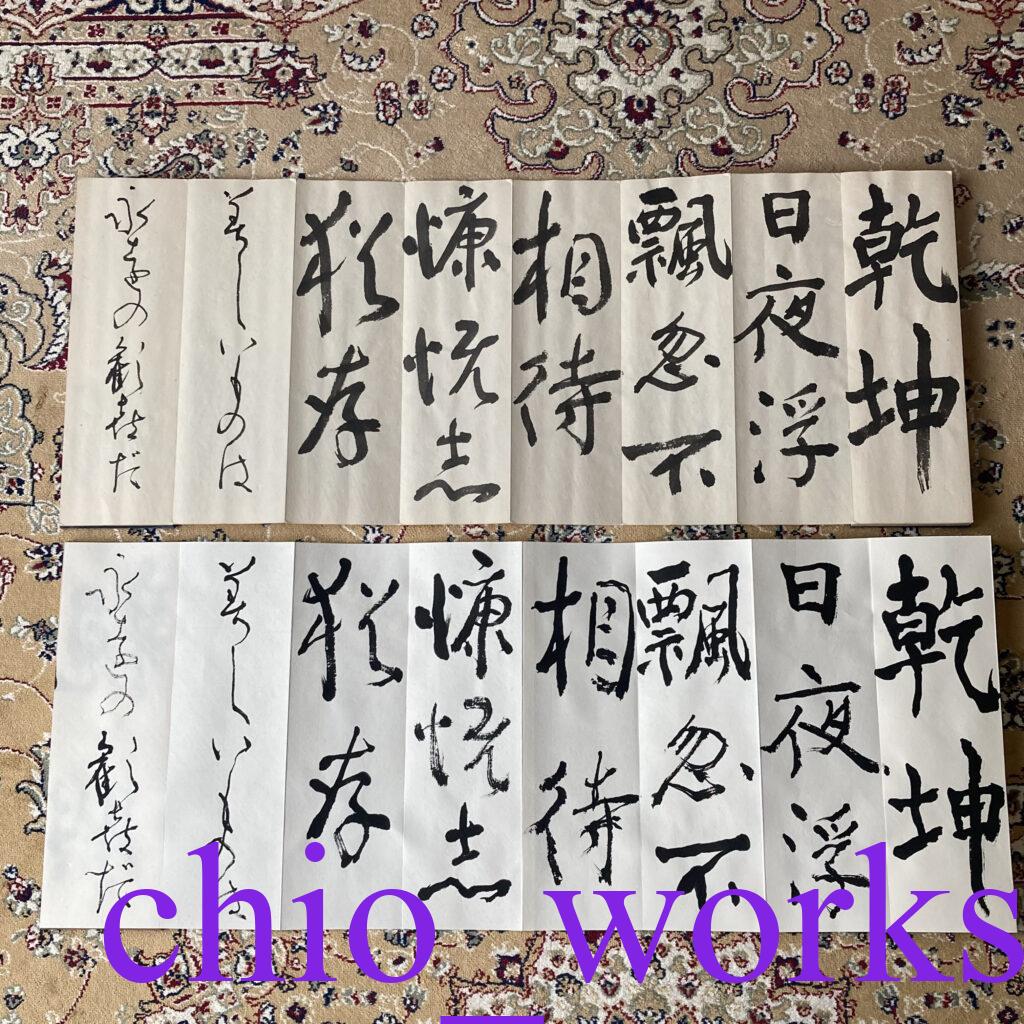 乾坤
日夜浮
飄忽不
相待
慷慨志
猶存
美しいものは
永遠の歓喜だ
乾坤
日夜浮
飄忽不
相待
慷慨志
猶存
美しいものは
永遠の歓喜だ
chio_works